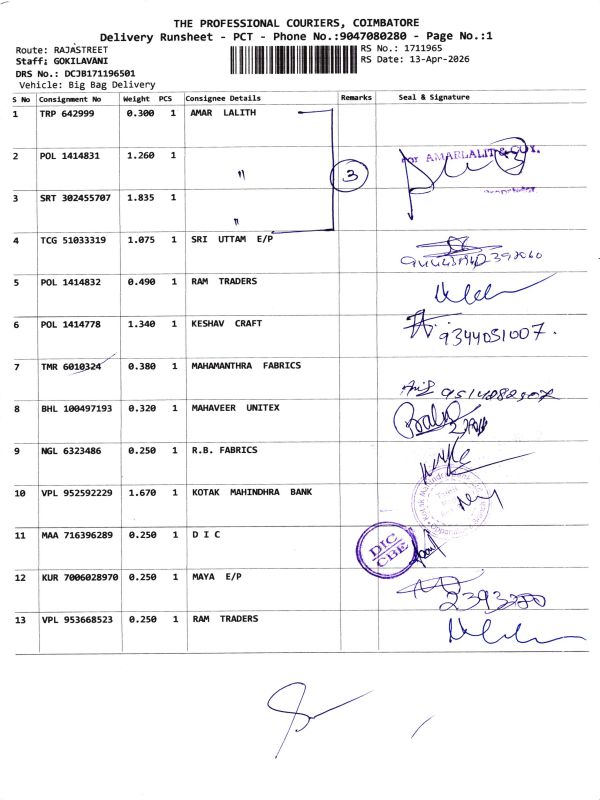 THE PROFESSIONAL COURIERS, COIMBATORE
Delivery Runsheet - PCT - Phone No.:9047080280 - Page No.:1
Route: RAJASTREET
RS No.: 1711965
Staff: GOKILAVANI
RS Date: 13-Apr-2026
DRS No.: DCJB171196501
Vehicle: Big Bag Delivery
S No Consignment No Weight PCS Consignee Details Remarks Seal & Signature
1 TRP 642999 0.300 1 AMAR LALITH
2 POL 1414831 1.260 1 " 3 For AMARLALIT & COY.
3 SRT 302455707 1.835 1 "
4 TCG 51033319 1.075 1 SRI UTTAM E/P
5 POL 1414832 0.490 1 RAM TRADERS
6 POL 1414778 1.340 1 KESHAV CRAFT 9344051007.
7 TMR 6010324 0.380 1 MAHAMANTHRA FABRICS
8 BHL 100497193 0.320 1 MAHAVEER UNITEX
9 NGL 6323486 0.250 1 R.B. FABRICS
10 VPL 952592229 1.670 1 KOTAK MAHINDHRA BANK
11 MAA 716396289 0.250 1 D I C DIC CBE
12 KUR 7006028970 0.250 1 MAYA E/P
13 VPL 953668523 0.250 1 RAM TRADERS